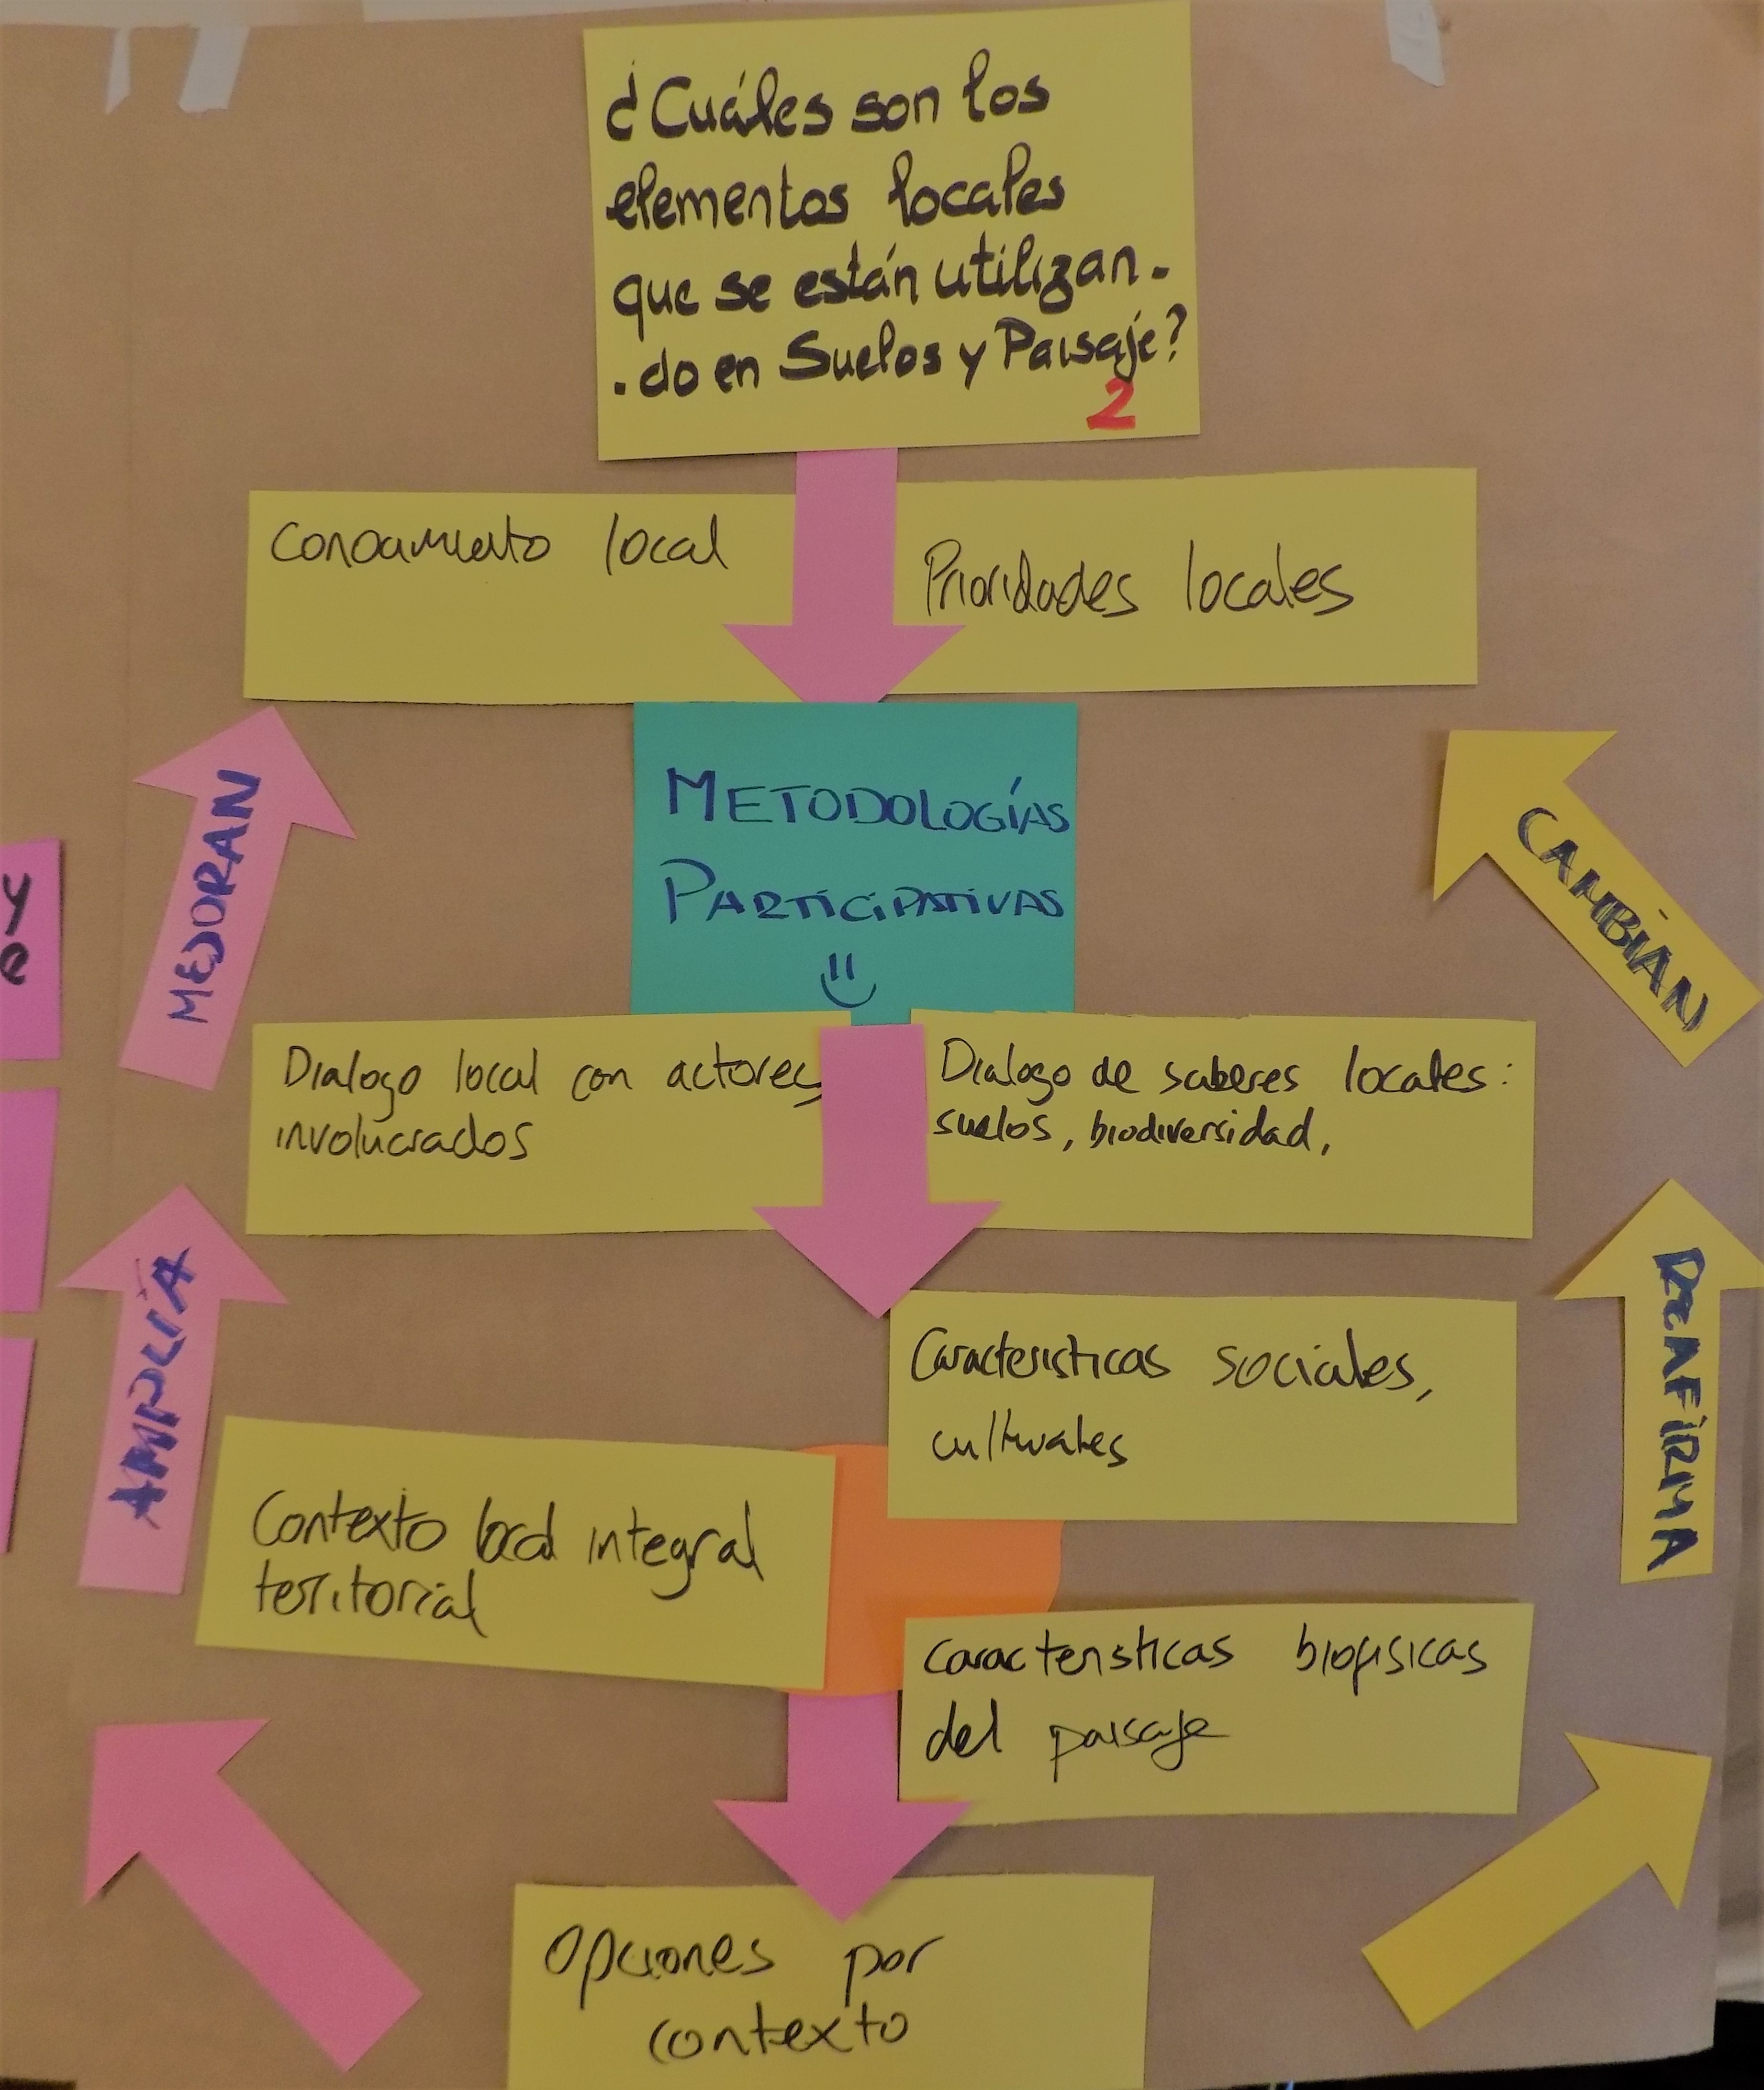 ¿Cuáles son los
elementos locales
que se están utilizan-
-do en Suelos y Paisaje?
2
Conocimiento local
Prioridades locales
METODOLOGÍAS
PARTICIPATIVAS
MEJORAN
CAMBIAN
y
e
Dialogo local con actores
involucrados
Dialogo de saberes locales:
suelos, biodiversidad,
AMPLÍA
REAFIRMA
Caracteristicas sociales,
culturales
Contexto local integral
territorial
caracteristicas biofisicas
del paisaje
Opciones por
contexto